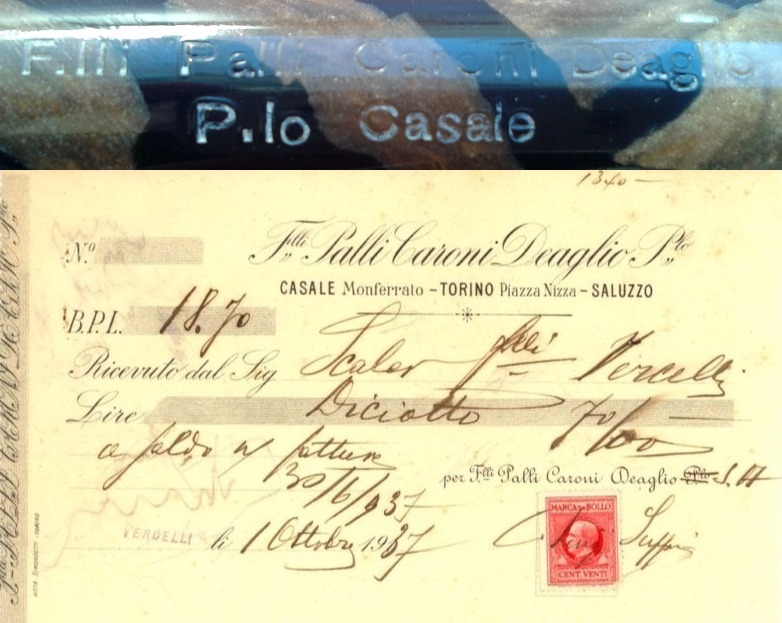 F.lli Palli Caroni Deaglio
P.lo Casale
1340 —
F.lli Palli Caroni Deaglio P.lo
CASALE Monferrato – TORINO Piazza Nizza – SALUZZO
N.o
B.P.L. 18.70
Ricevuto dal Sig. Scaler flli Vercelli
Lire Diciotto 70/100
a saldo n/ fattura
30/6/937
per F.lli Palli Caroni Deaglio P.lo S. A
MARCA DA BOLLO
CENT VENTI
VERCELLI li 1 Ottobre 1937
DITTA SIMONDETTI - TORINO